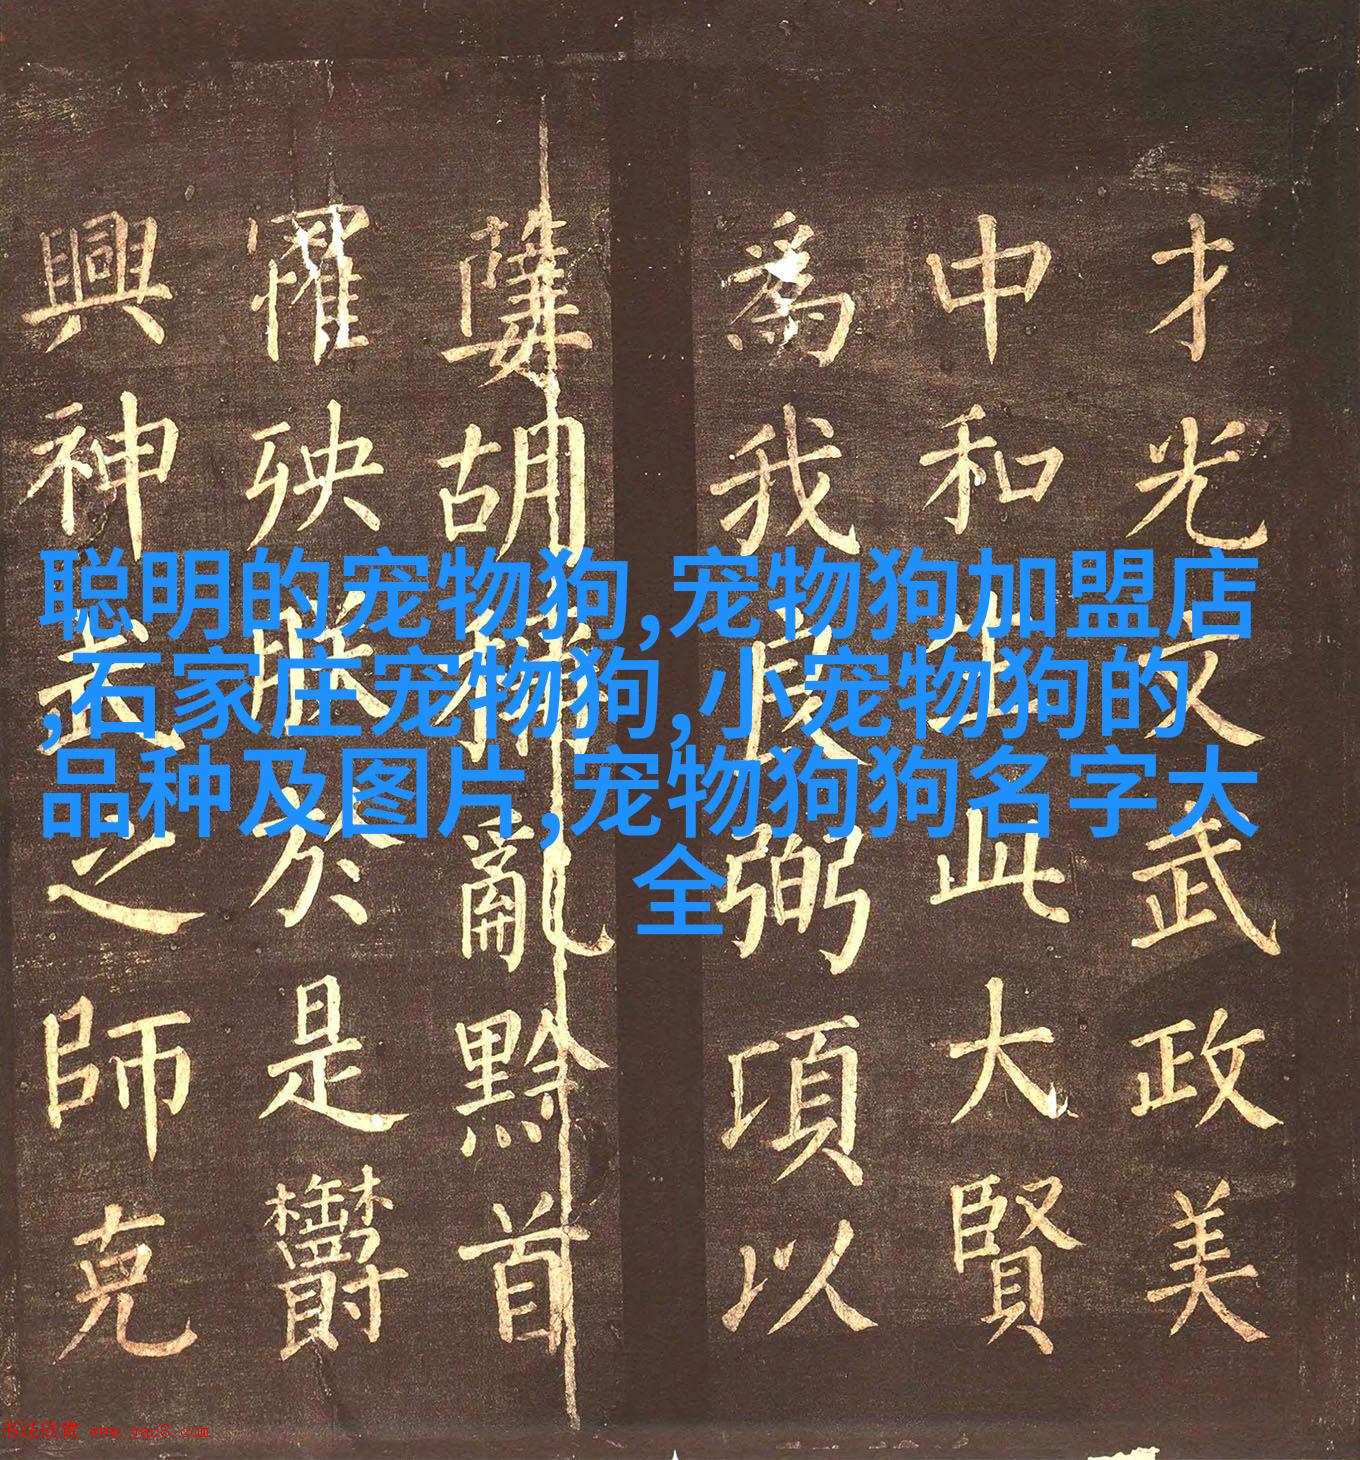 聪明的宠物狗,宠物狗加盟店
,石家庄宠物狗,小宠物狗的
品种及图片,宠物狗狗名字大
全
才光文武政美
中和此大賢
爲我良弼項以
胡亂黔首
罹殃於是欝
興神武之師克
书法欣赏 www.yac8.com